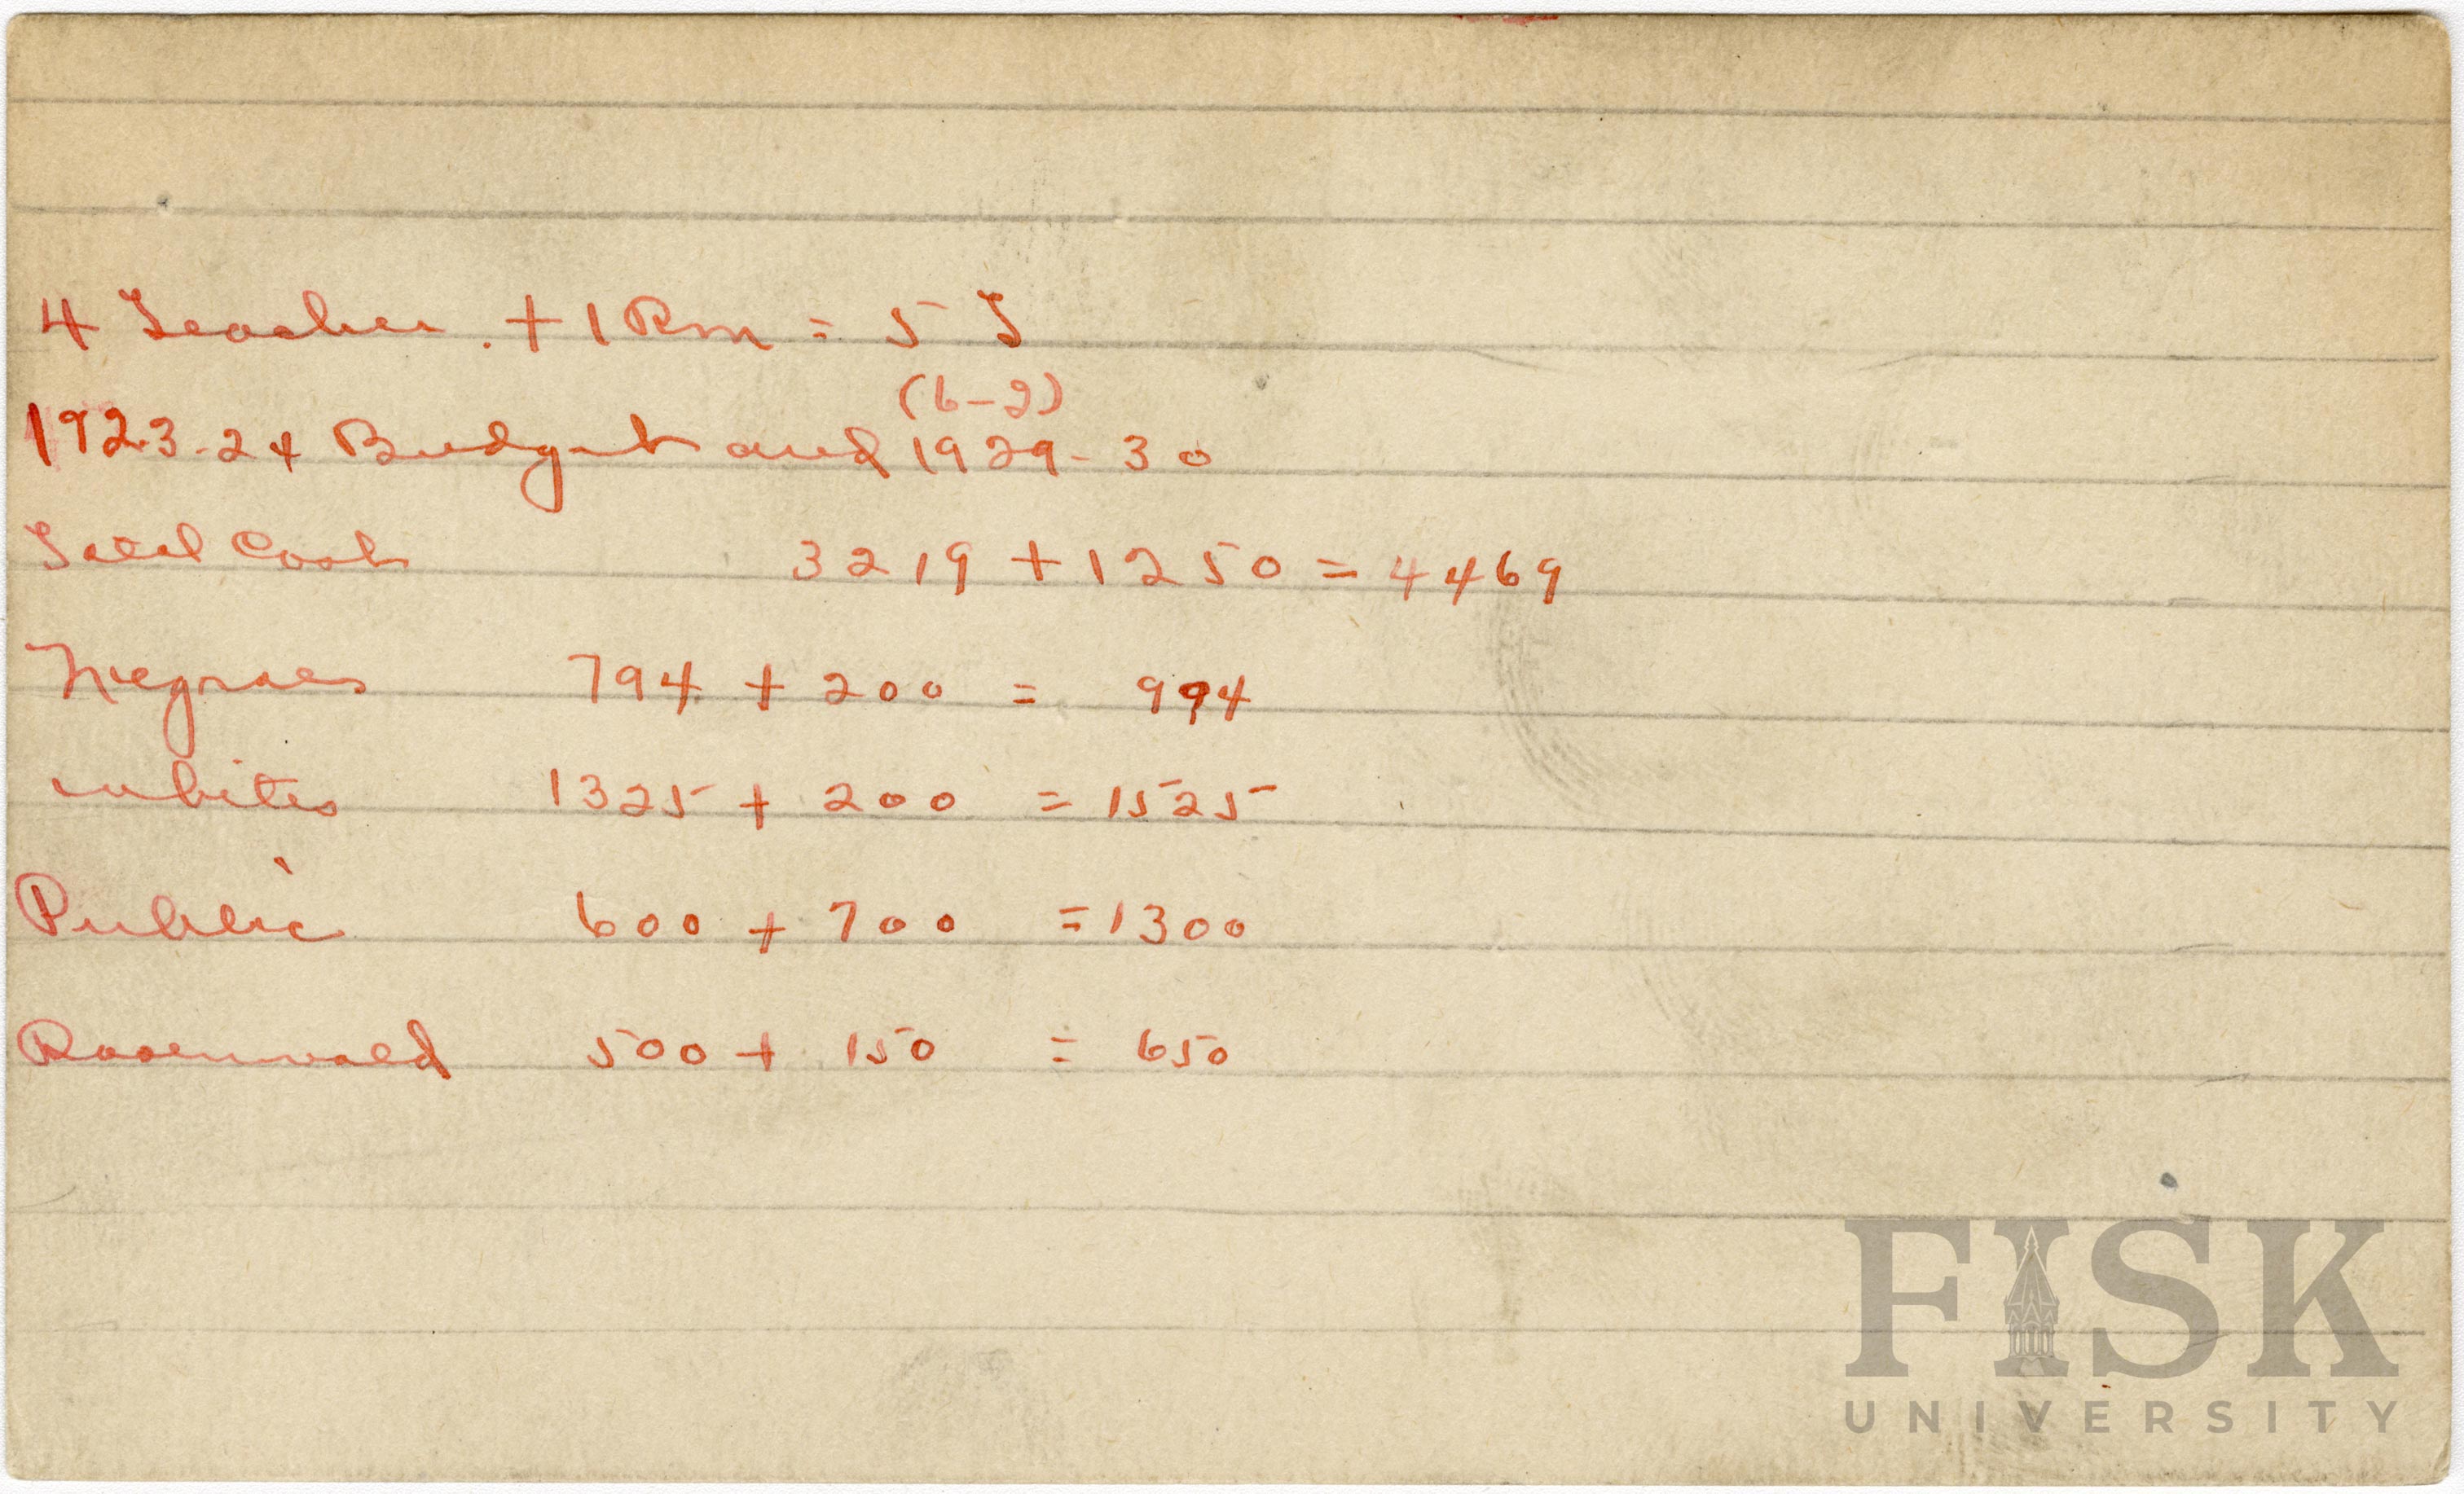 4 Teacher. + 1 Rm = 5 T
(6-2)
1923-24 Budget and 1929-30
Total Cost 3219 + 1250 = 4469
Negroes 794 + 200 = 994
whites 1325 + 200 = 1525
Public 600 + 700 = 1300
Rosenwald 500 + 150 = 650
FISK
UNIVERSITY